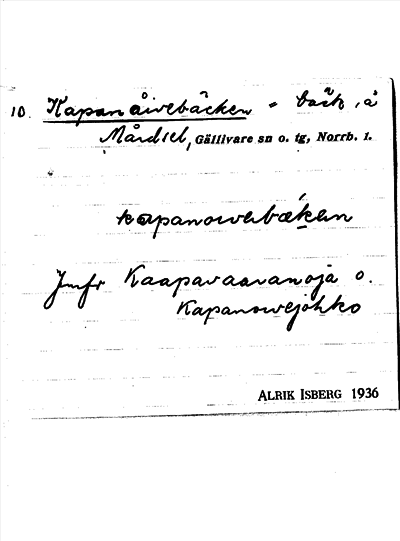 10. Kapanåivebäcken = bäck, å
Mårdsel, Gällivare sn o. tg, Norrb. l.
kapanoivebækken
Jmfr Kaapavaaranoja o.
Kapanoivejohko
ALRIK ISBERG 1936